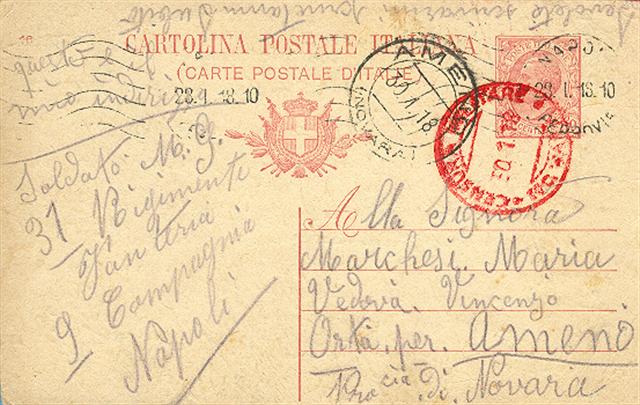 Se volete scrivermi scrivetemi subito
questo è il
mio indirizzo
16
CARTOLINA POSTALE ITALIANA
(CARTE POSTALE D'ITALIE)
28.1.18.10
28.1.18.10
NAPOLI
FERROVIA
AMENO
(NOVARA)
30.1.18
CENSURA MILITARE
30.1.18
Soldato M. G.
31 Rigimento
Fanteria
9 Compagnia
Napoli
Alla Signora
Marchesi Maria
Vedova Vincenzo
Orta per Ameno
Procia di Novara